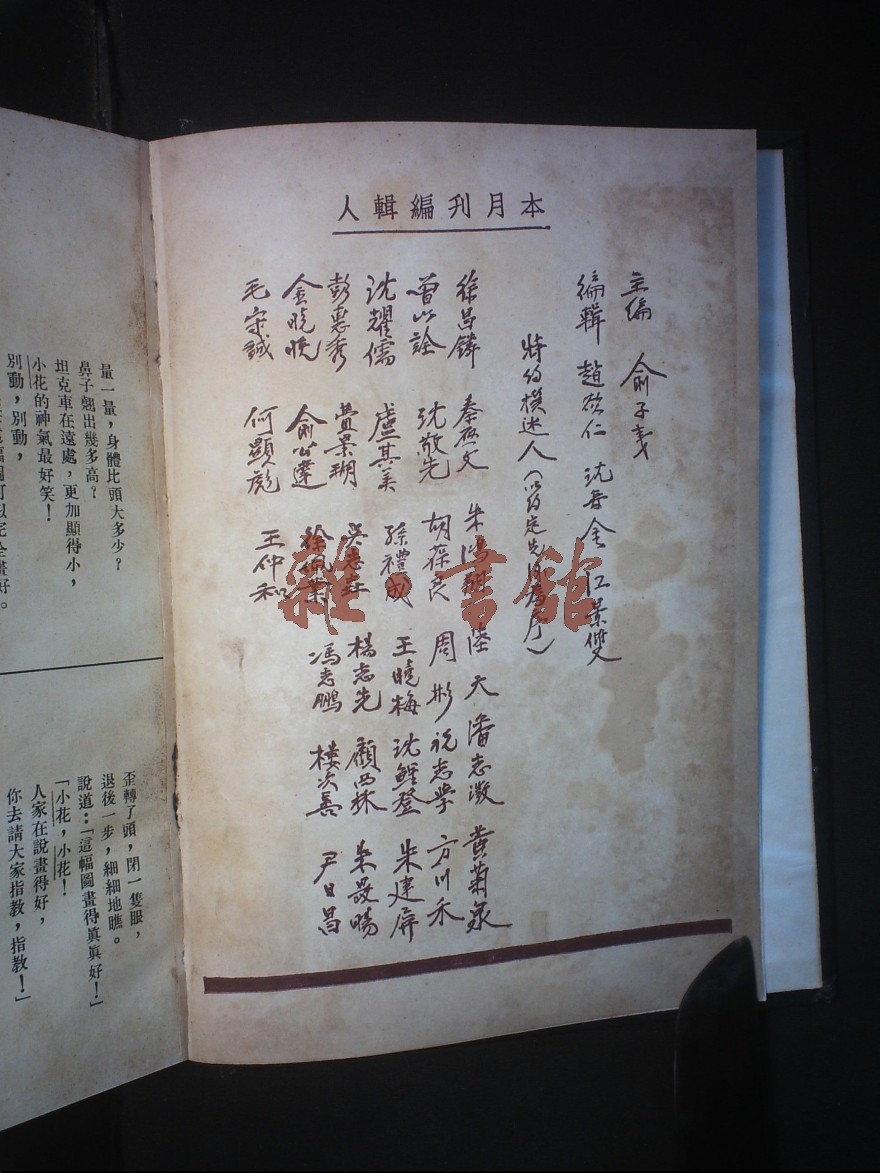 本月刊編輯人
主編 俞子夷
編輯 趙欲仁 沈百金 江景雙
特約撰述人(以約定先後為序)
徐昌鏻 秦 文 朱鴻 陸天 潘志澂 黃菊泉
曾以詮 沈敬先 胡葆良 周彬 祝志學 方川禾
沈耀儒 盧其美 孫禮成 王曉梅 沈鯉登 朱建屏
彭惠秀 費景瑚 吳志 楊志先 顧西林 朱晸暘
金曉晚 俞公達 徐 馮志鵬 樓次善 尹日昌
毛宗誠 何顯彪 王仲和
量一量,身體比頭大多少?
鼻子翹出幾多高?
坦克車在遠處,更加顯得小,
小花的神氣最好笑!
別動,別動,
歪轉了頭,閉一隻眼,
退後一步,細細地瞧。
說道:「這幅圖畫得眞眞好!」
「小花,小花!
人家在說畫得好,
你去請大家指教,指教!」
雜·書館